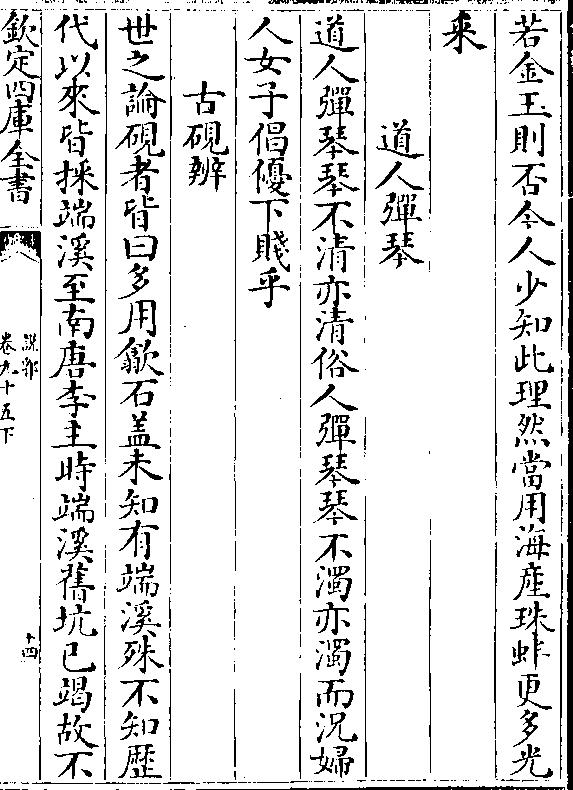 若金玉則否今人少知此理然當用海産珠蚌更多光
采
道人彈琴
道人彈琴琴不清亦清俗人彈琴琴不濁亦濁而況婦
人女子倡優下賤乎
古硯辨
世之論硯者皆曰多用歙石盖未知有端溪殊不知歴
代以來皆採端溪至南唐李主時端溪舊坑已竭故不
欽定四庫全書
説郛
卷九十五下
十四